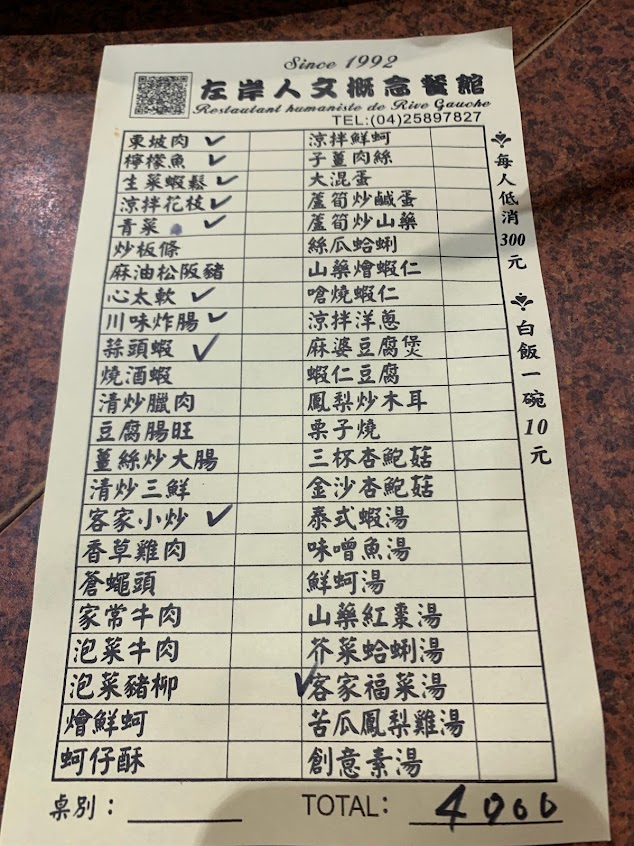 Since 1992
左岸人文概念餐館
Restautant humaniste de Rive Gauche
TEL:(04)25897827
東坡肉 ✓ 涼拌鮮蚵
檸檬魚 ✓ 子薑肉絲
生菜蝦鬆 ✓ 大混蛋
涼拌花枝 ✓ 蘆筍炒鹹蛋
青菜 ✓ 蘆筍炒山藥
炒板條 絲瓜蛤蜊
麻油松阪豬 山藥燴蝦仁
心太軟 ✓ 嗆燒蝦仁
川味炸腸 ✓ 涼拌洋蔥
蒜頭蝦 ✓ 麻婆豆腐煲
燒酒蝦 蝦仁豆腐
清炒臘肉 鳳梨炒木耳
豆腐腸旺 栗子燒
薑絲炒大腸 三杯杏鮑菇
清炒三鮮 金沙杏鮑菇
客家小炒 ✓ 泰式蝦湯
香草雞肉 味噌魚湯
蒼蠅頭 鮮蚵湯
家常牛肉 山藥紅棗湯
泡菜牛肉 芥菜蛤蜊湯
泡菜豬柳 ✓客家福菜湯
燴鮮蚵 苦瓜鳳梨雞湯
蚵仔酥 創意素湯
每人低消300元
白飯一碗10元
桌別：
TOTAL: 4900